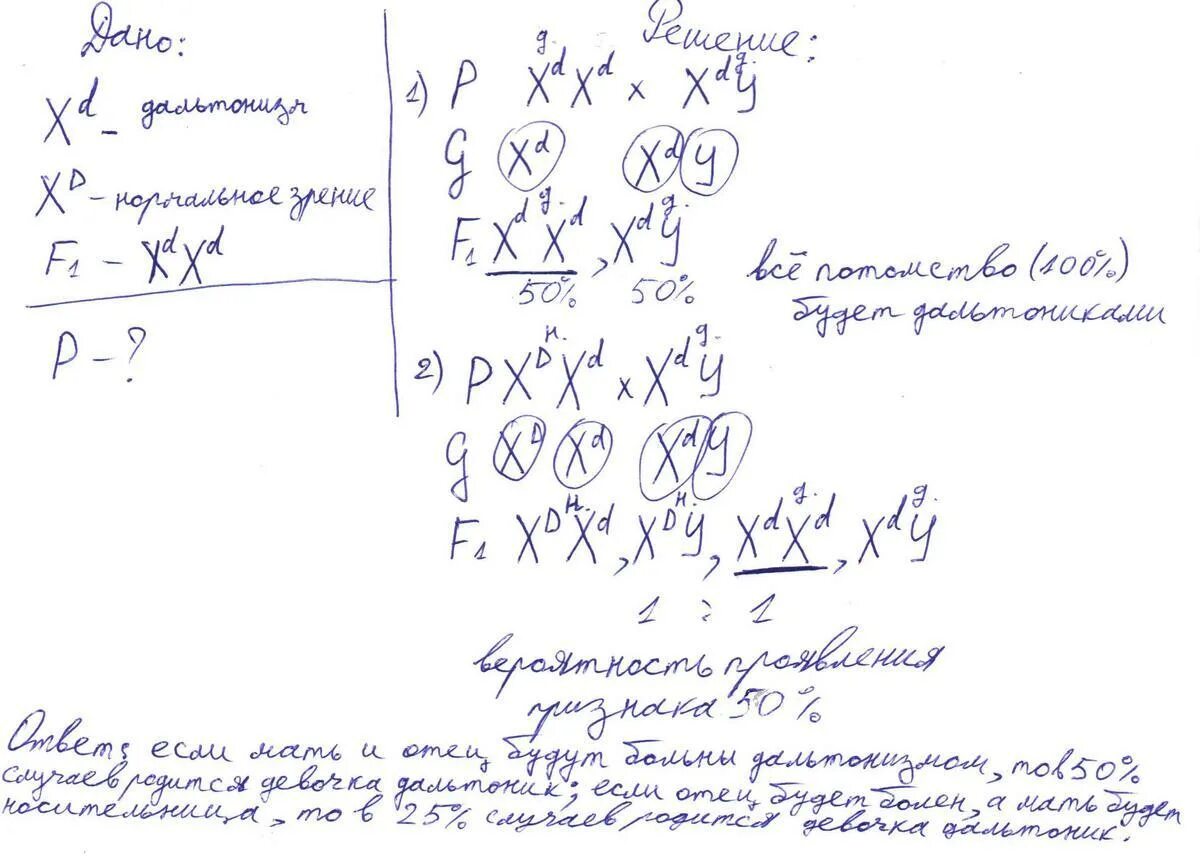 Дано:
X^d – дальтонизм
X^D – нормальное зрение
F₁ – X^d X^d
P – ?
Решение:
д. д.
1) P X^d X^d x X^d Y
G X^d X^d Y
д. д.
F₁ X^d X^d, X^d Y
50% 50%
всё потомство (100%)
будет дальтониками
н. д.
2) P X^D X^d x X^d Y
G X^D X^d X^d Y
н. н. д. д.
F₁ X^D X^d, X^D Y, X^d X^d, X^d Y
1 : 1
вероятность проявления
признака 50%
Ответ: если мать и отец будут больны дальтонизмом, то в 50%
случаев родится девочка дальтоник; если отец будет болен, а мать будет
носительница, то в 25% случаев родится девочка дальтоник.